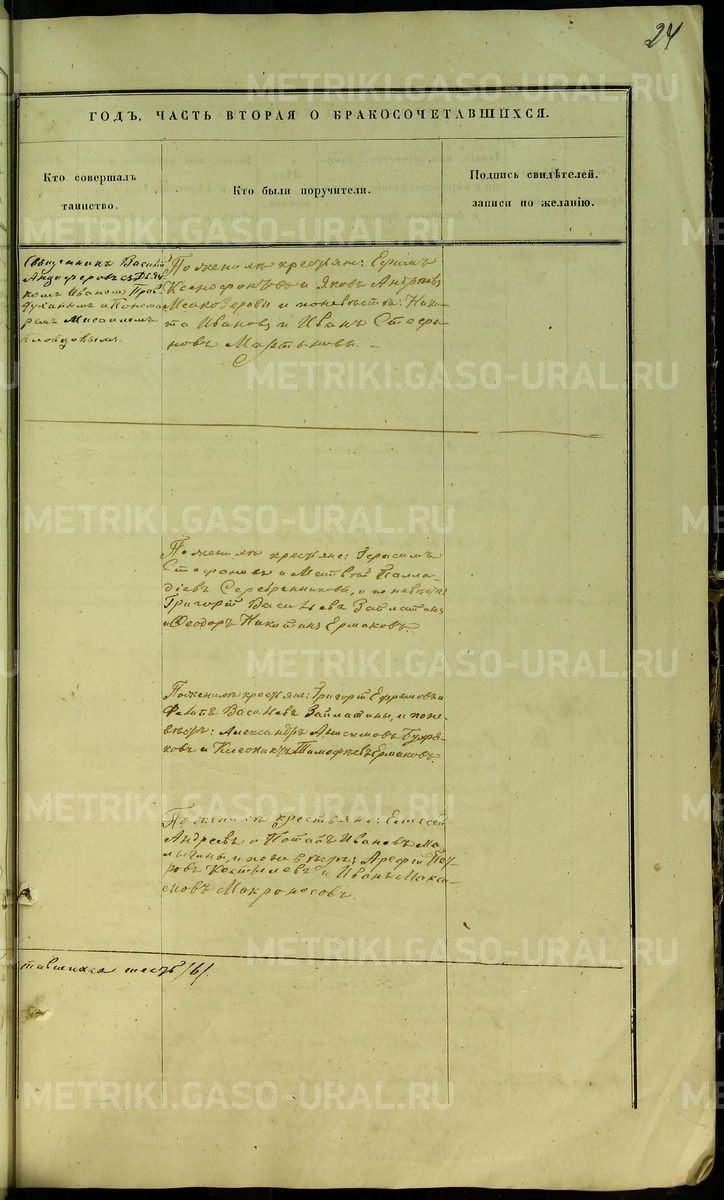 24
ГОДЪ, ЧАСТЬ ВТОРАЯ О БРАКОСОЧЕТАВШИХСЯ.
Кто совершалъ
таинство.
Кто были поручители.
Подпись свидѣтелей.
записи по желанію.
Священникъ Василій
съ Дьяч-
комъ Иваномъ
и Понома-
ремъ
По женихѣ крестьяне: Ефимъ
Ксенофонтовъ и Яковъ Андреевъ
и по невѣстѣ: Ники-
та Ивановъ и Иванъ Стефа-
новъ Мартыновы.
По женихѣ крестьяне: Герасимъ
Стефановъ и Матвѣй Палла-
діевъ Серебренниковы, и по невѣстѣ:
Григорій Васильевъ Займатинъ
и Ѳеодоръ Никитинъ Ермаковъ.
По женихѣ крестьяне: Григорій Ефремовъ и
Васильевъ Займатины, и по не-
вѣстѣ: Александръ Анисимовъ
ковъ и Тимофѣевъ Ермаковъ
По женихѣ крестьяне: Елисей
Андреевъ и Потапъ Ивановъ Ма-
лыгины, и по невѣстѣ: Арефій Пет-
ровъ Костылевъ и Иванъ Макси-
мовъ Мокроносовъ.
тавшихся шесть /6/.
METRIKI.GASO-URAL.RU